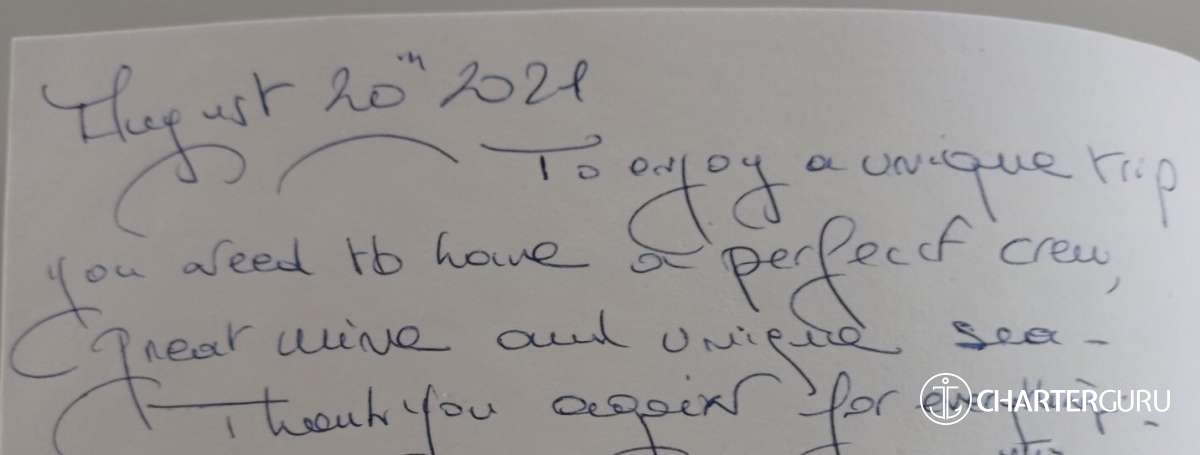 August 20th 2021
To enjoy a unique trip
you need to have a perfect crew,
great wine and unique sea -
Thank you again for everything.
CHARTERGURU